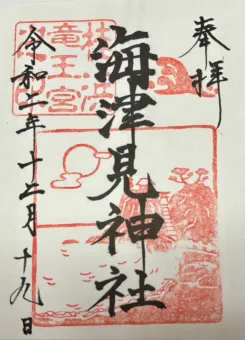 奉拝
海津見神社
令和二年十二月十九日
桂浜
竜王宮